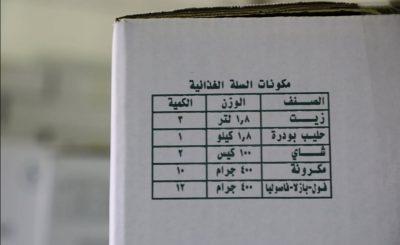 مكونات السلة الغذائية
الصنف الوزن الكمية
زيت ١,٨ لتر ٣
حليب بودرة ١,٨ كيلو ١
شاي ١٠٠ كيس ٢
مكرونة ٤٠٠ جرام ١٠
فول-بازلا-فاصوليا ٤٠٠ جرام ١٢